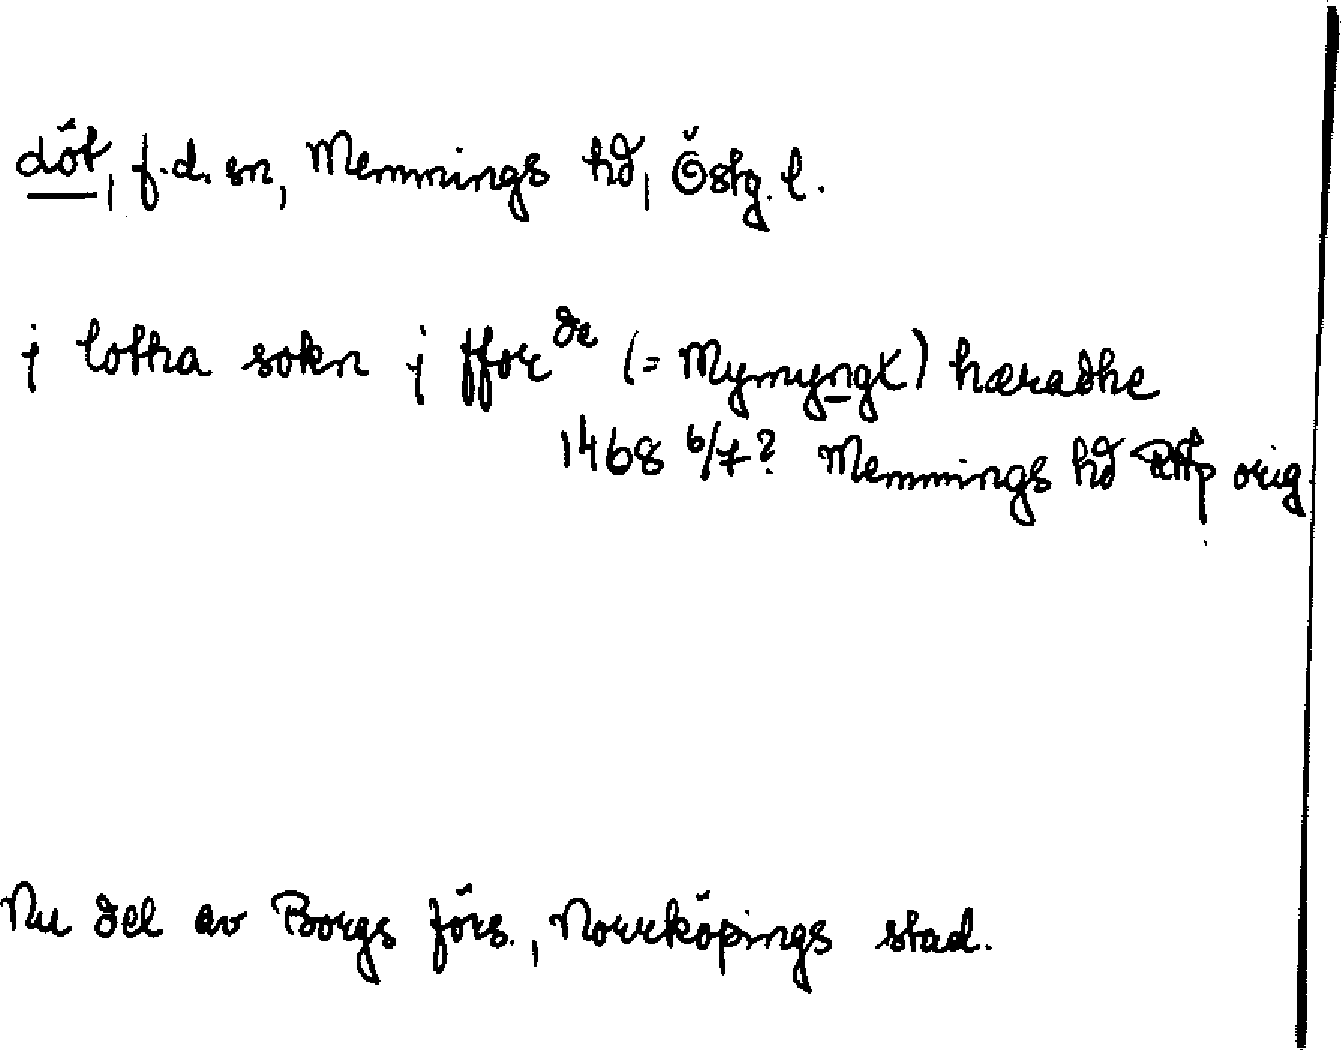 Löt, f.d. sn, Memmings hd, Östg. l.
j lotha sokn j ffor de (= Mymyngx) hæradhe
1468 6/7? Memmings hd RAp orig.
Nu del av Borgs förs., Norrköpings stad.